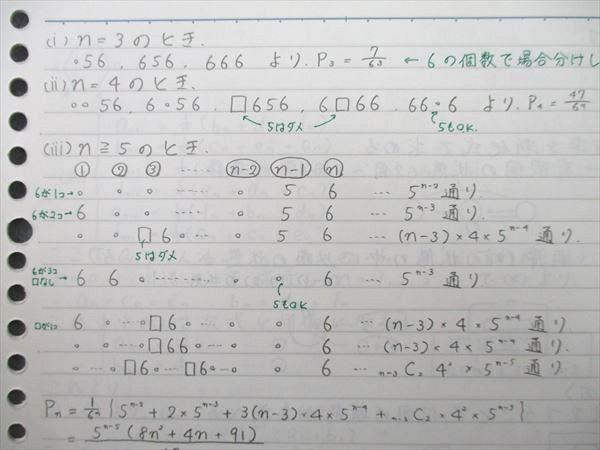 (i) n=3 のとき.
○56, 656, 666 より. P₃ = 7/6³ ← 6の個数で場合分けし
(ii) n=4 のとき.
○○56, 6○56, □656, 6□66, 66○6 より. P₄ = 47/6⁴
5はダメ 5もOK.
(iii) n≧5 のとき.
① ② ③ …… n-2 n-1 n
6が1コ→ ○ ○ ○ …… ○ 5 6 … 5ⁿ⁻² 通り
6が2コ→ 6 ○ ○ …… ○ 5 6 … 5ⁿ⁻³ 通り.
○ ○ □ 6 ○ … ○ 5 6 … (n-3)×4×5ⁿ⁻⁴ 通り.
5はダメ
6が3コ □なし→ 6 6 ○ …… ○ ○ 6 … 5ⁿ⁻³ 通り
5もOK
□が1コ 6 ○ … ○ □ 6 ○ … ○ ○ 6 … (n-3)×4×5ⁿ⁻⁴ 通り
○ … ○ □ 6 6 ○ … ○ ○ 6 … (n-3)×4×5ⁿ⁻⁴ 通り.
○ … □ 6 ○ … □ 6 ○ … ○ ○ 6 … ₙ₋₃C₂ 4² × 5ⁿ⁻⁵ 通り
Pₙ = 1/6ⁿ { 5ⁿ⁻² + 2×5ⁿ⁻³ + 3(n-3)×4×5ⁿ⁻⁴ + ₙ₋₃C₂ × 4² × 5ⁿ⁻⁵ }
= 5ⁿ⁻⁵ (8n² + 4n + 91)